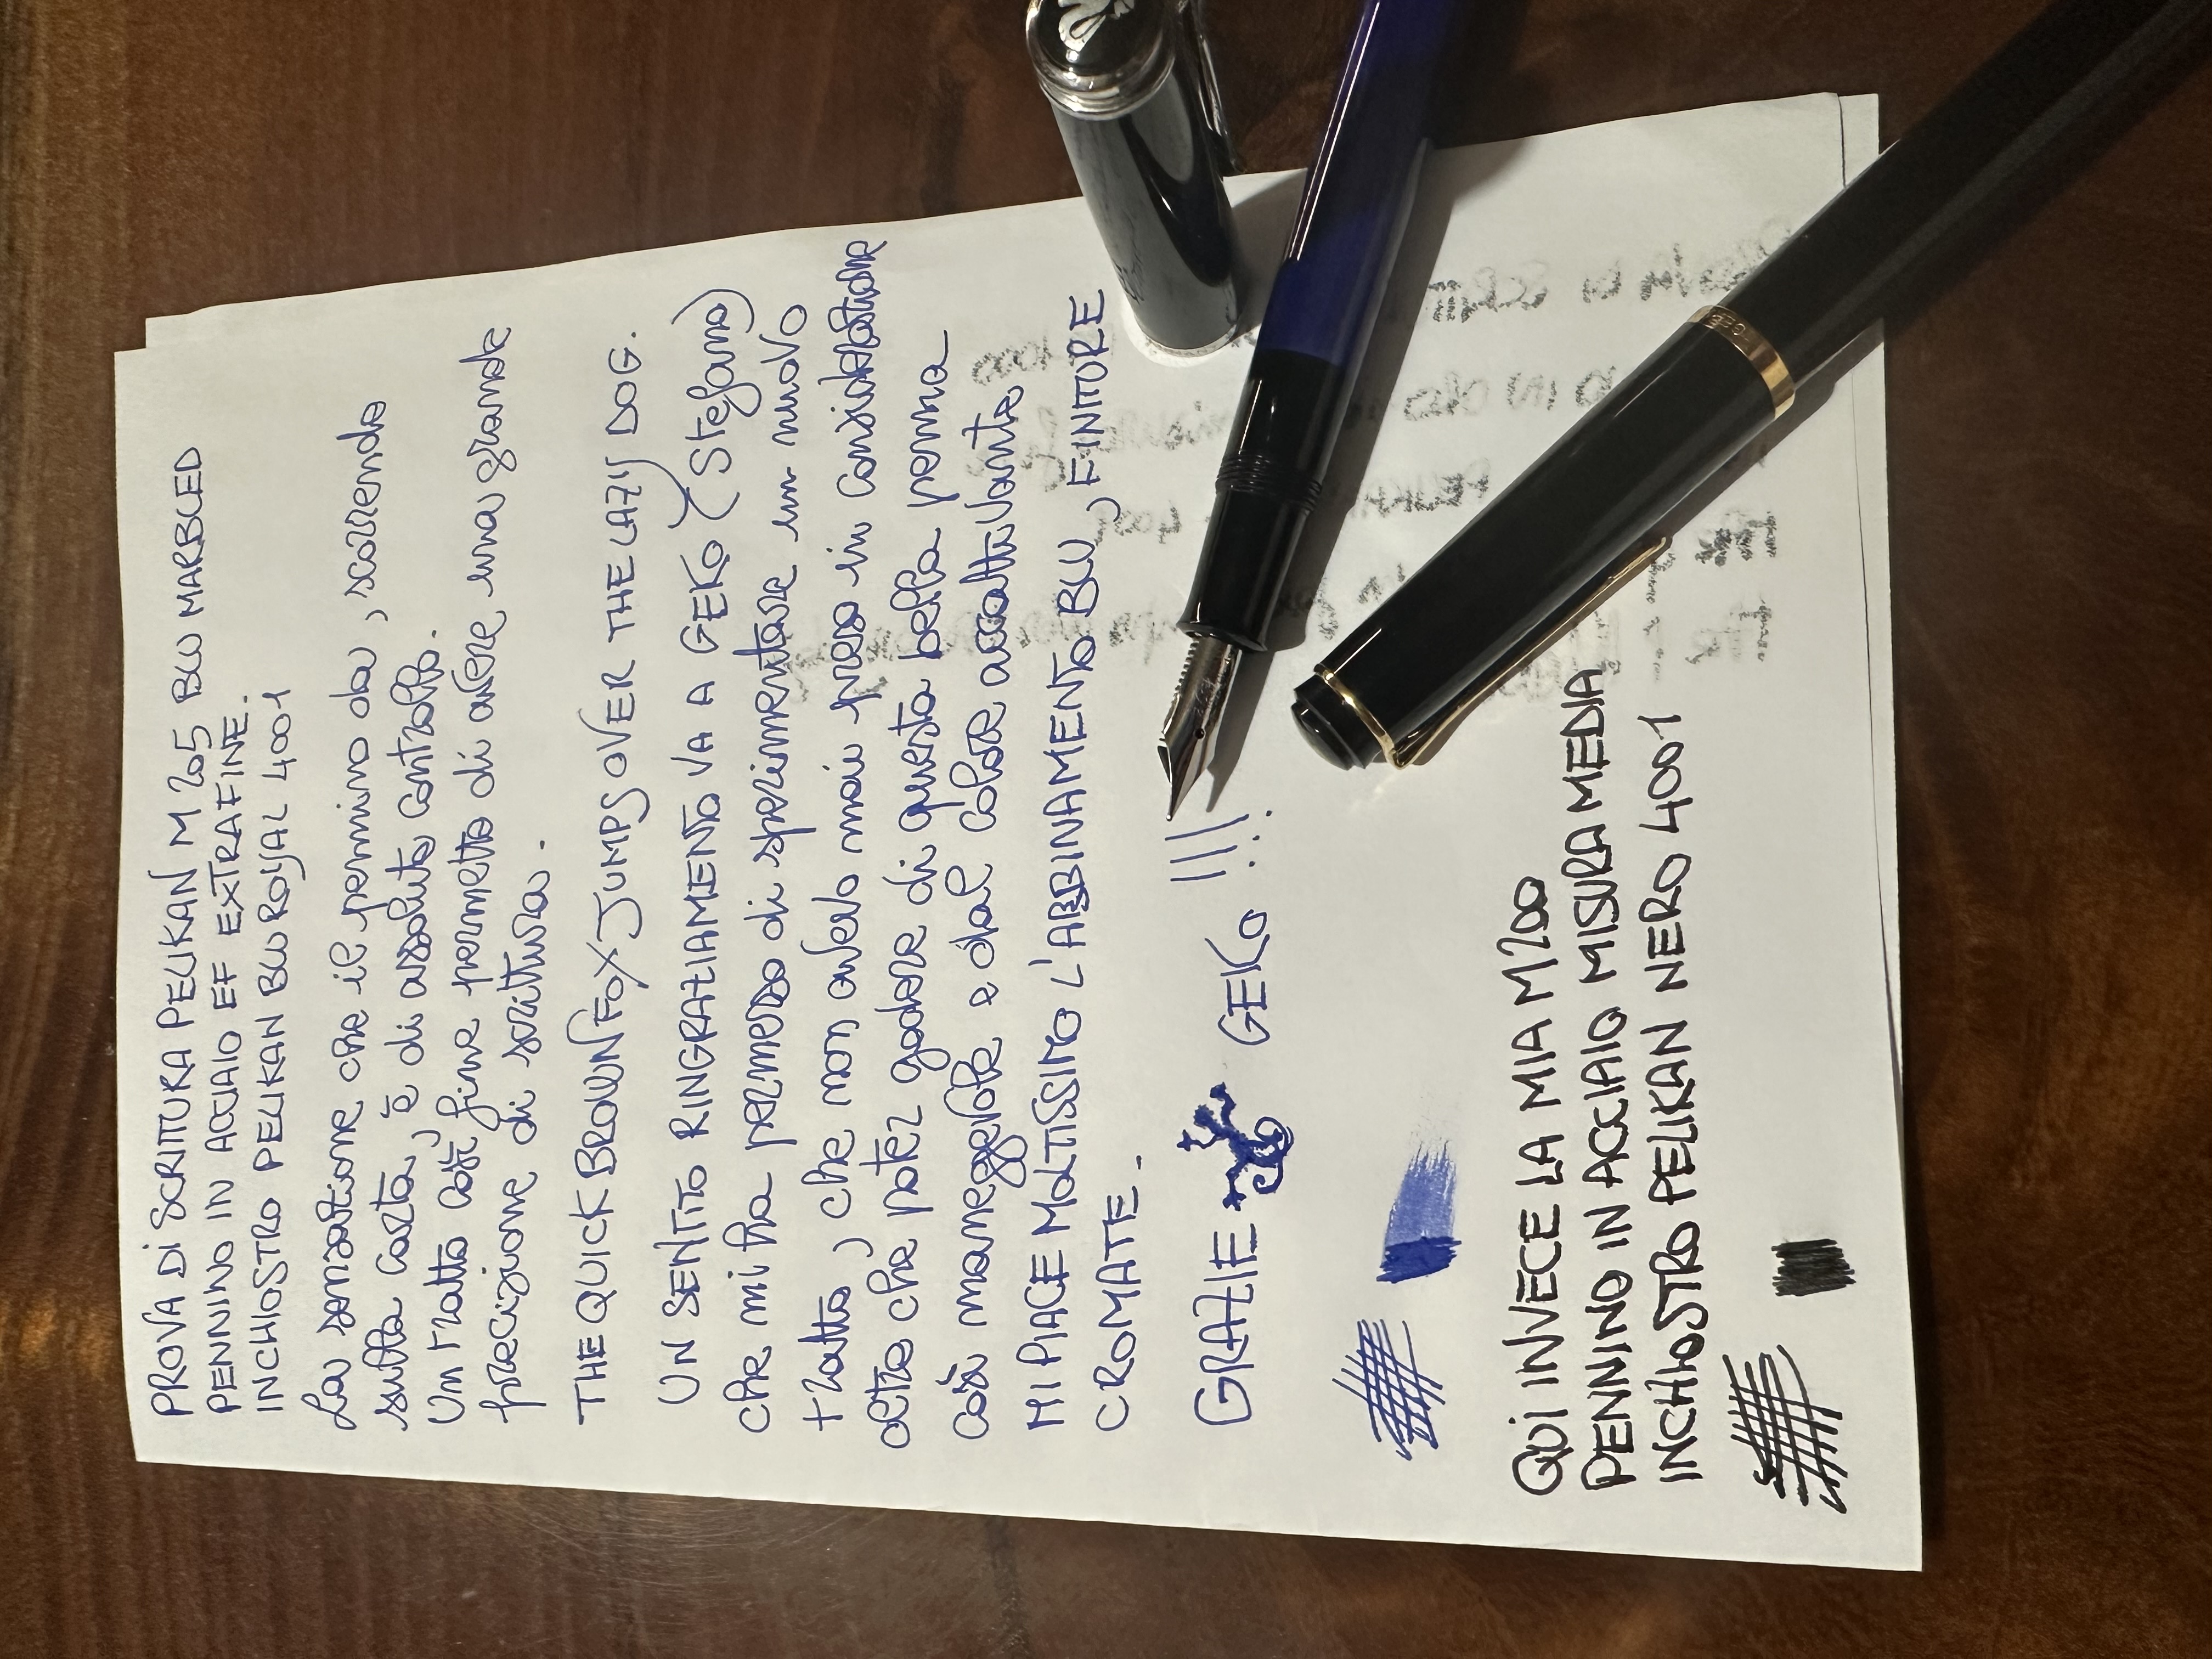 PROVA DI SCRITTURA PELIKAN M 205 BLU MARBLED
PENNINO IN ACCIAIO EF EXTRAFINE.
INCHIOSTRO PELIKAN BLU ROYAL 4001
La sensazione che il pennino da, scorrendo
sulla carta, è di assoluto controllo.
Un tratto così fine permette di avere una grande
precisione di scrittura.
THE QUICK BROWN FOX JUMPS OVER THE LAZY DOG.
UN SENTITO RINGRAZIAMENTO VA A GEKO (Stefano)
che mi ha permesso di sperimentare un nuovo
tratto, che non avevo mai preso in considerazione
oltre che poter godere di questa bella penna
così maneggevole e dal colore accattivante
MI PIACE MOLTISSIMO L'ABBINAMENTO BLU, FINITURE
CROMATE.
GRAZIE GEKO !!!!
QUI INVECE LA MIA M200
PENNINO IN ACCIAIO MISURA MEDIA
INCHIOSTRO PELIKAN NERO 4001